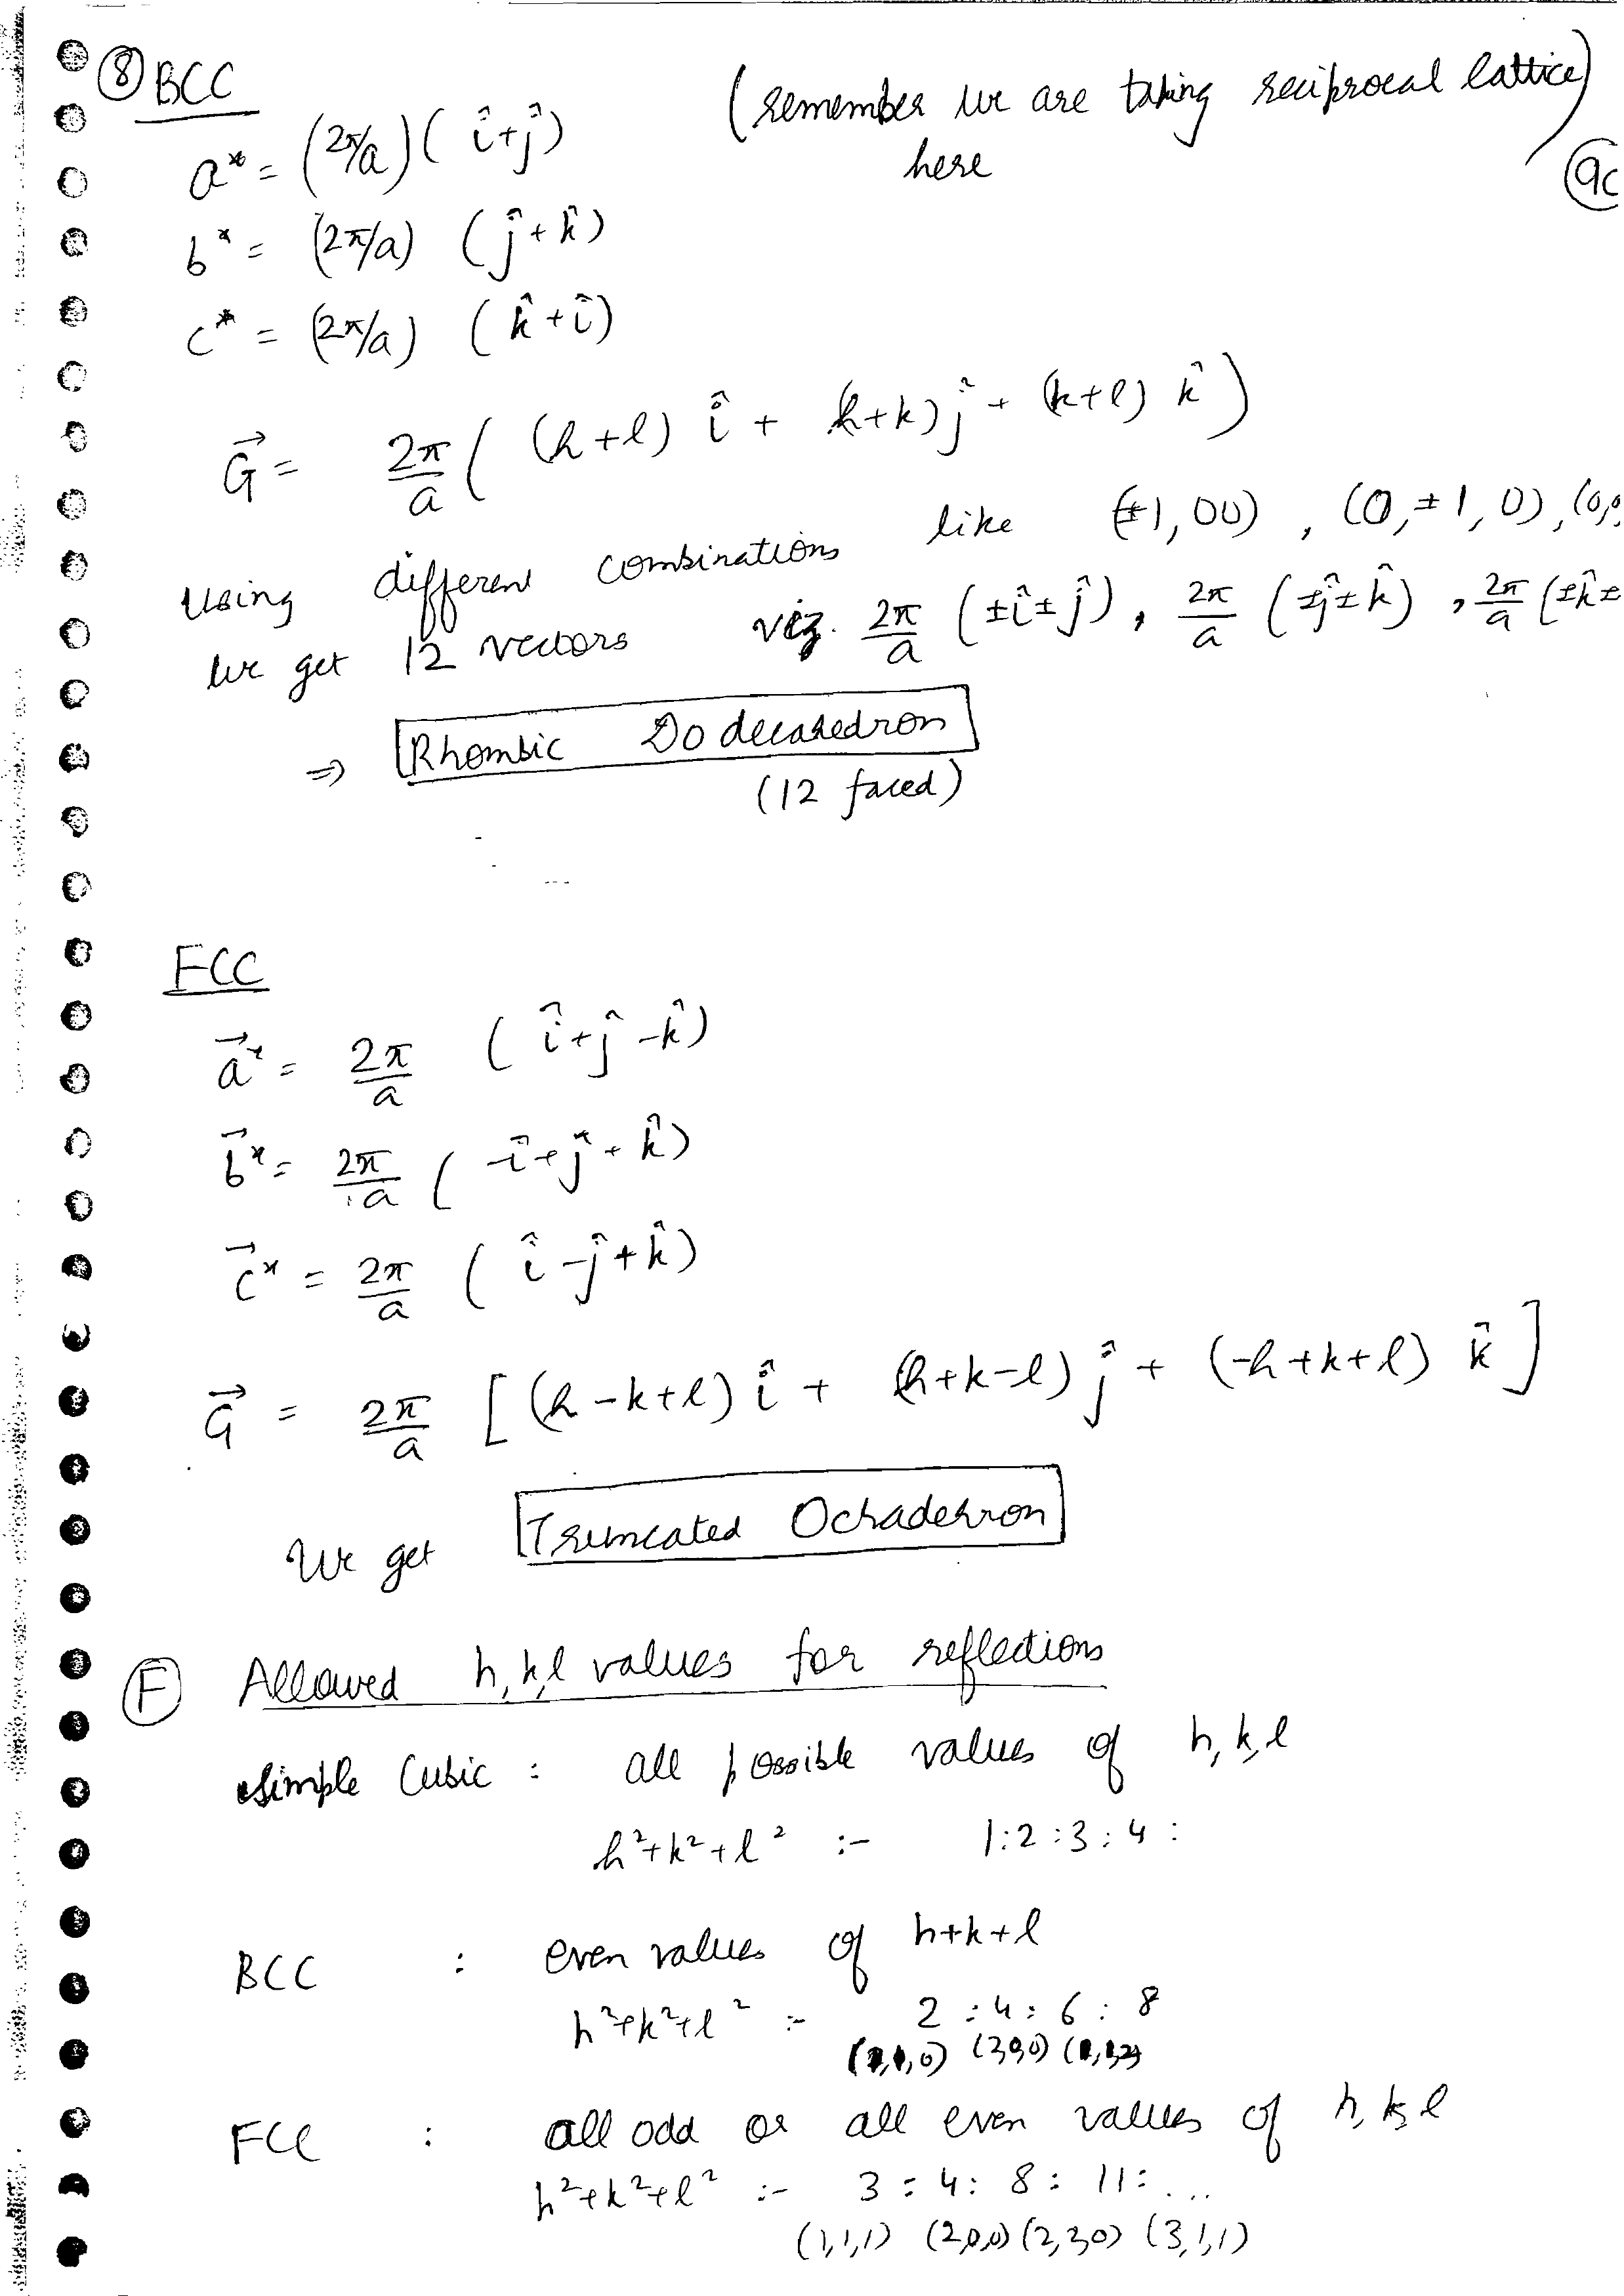 ⑧ BCC (remember we are taking reciprocal lattice)
here
a* = (2π/a) ( î+ĵ )
b* = (2π/a) ( ĵ+k̂ )
c* = (2π/a) ( k̂+î )
G⃗ = 2π/a ( (h+l) î + (h+k) ĵ + (k+l) k̂ )
Using different combinations like (±1,00) , (0,±1,0), (0,0,
we get 12 vectors viz. 2π/a (±î±ĵ), 2π/a (±ĵ±k̂), 2π/a (±k̂±
⇒ Rhombic Dodecahedron
(12 faced)
FCC
a⃗* = 2π/a ( î+ĵ-k̂ )
b⃗* = 2π/a ( -î+ĵ+k̂ )
c⃗* = 2π/a ( î-ĵ+k̂ )
G⃗ = 2π/a [ (h-k+l) î + (h+k-l) ĵ + (-h+k+l) k̂ ]
We get Truncated Octadehron
Ⓕ Allowed h,k,l values for reflections
Simple Cubic : all possible values of h,k,l
h²+k²+l² :- 1:2:3:4:
BCC : even values of h+k+l
h²+k²+l² :- 2:4:6:8
(2,0,0)
FCC : all odd or all even values of h,k,l
h²+k²+l² :- 3:4:8:11:...
(1,1,1) (2,0,0) (2,2,0) (3,1,1)